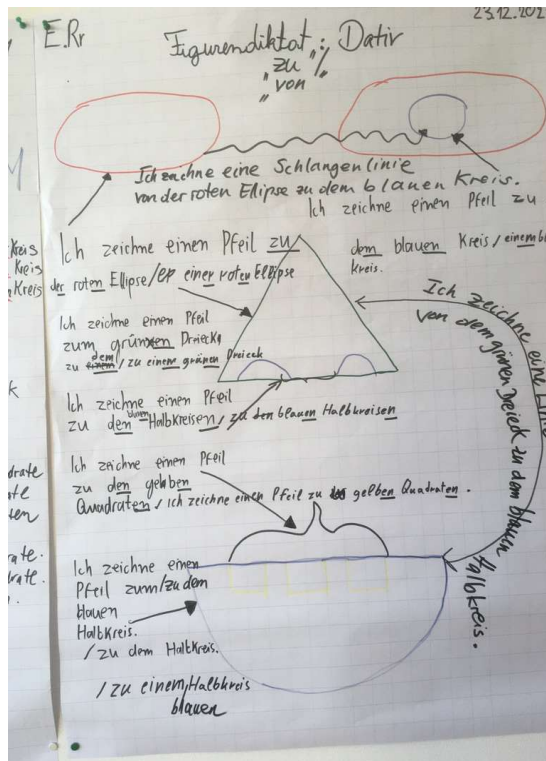 23.12.202
E.Rr
Figurendiktat: Dativ
"zu"/
"von"
Ich zeichne eine Schlangenlinie
von der roten Ellipse zu dem blauen Kreis.
Ich zeichne einen Pfeil zu
dem blauen Kreis / einem b
kreis.
Ich zeichne einen Pfeil zu
der roten Ellipse / einer roten Ellipse
Ich zeichne einen Pfeil
zum grünen Dreieck
zu dem / zu einem grünen Dreieck
Ich zeichne einen Pfeil
zu den blauen Halbkreisen / zu den blauen Halbkreisen
Ich zeichne einen Pfeil
zu den gelben
Quadraten / Ich zeichne einen Pfeil zu gelben Quadraten.
Ich zeichne eine Linie
von dem grünen Dreieck zu dem blauen
Halbkreis.
Ich zeichne einen
Pfeil zum/zu dem
blauen
Halbkreis.
/ zu dem Halbkreis.
/ zu einem Halbkreis
blauen
Kreis
Kreis
Kreis
k
drate
rate.
drate.